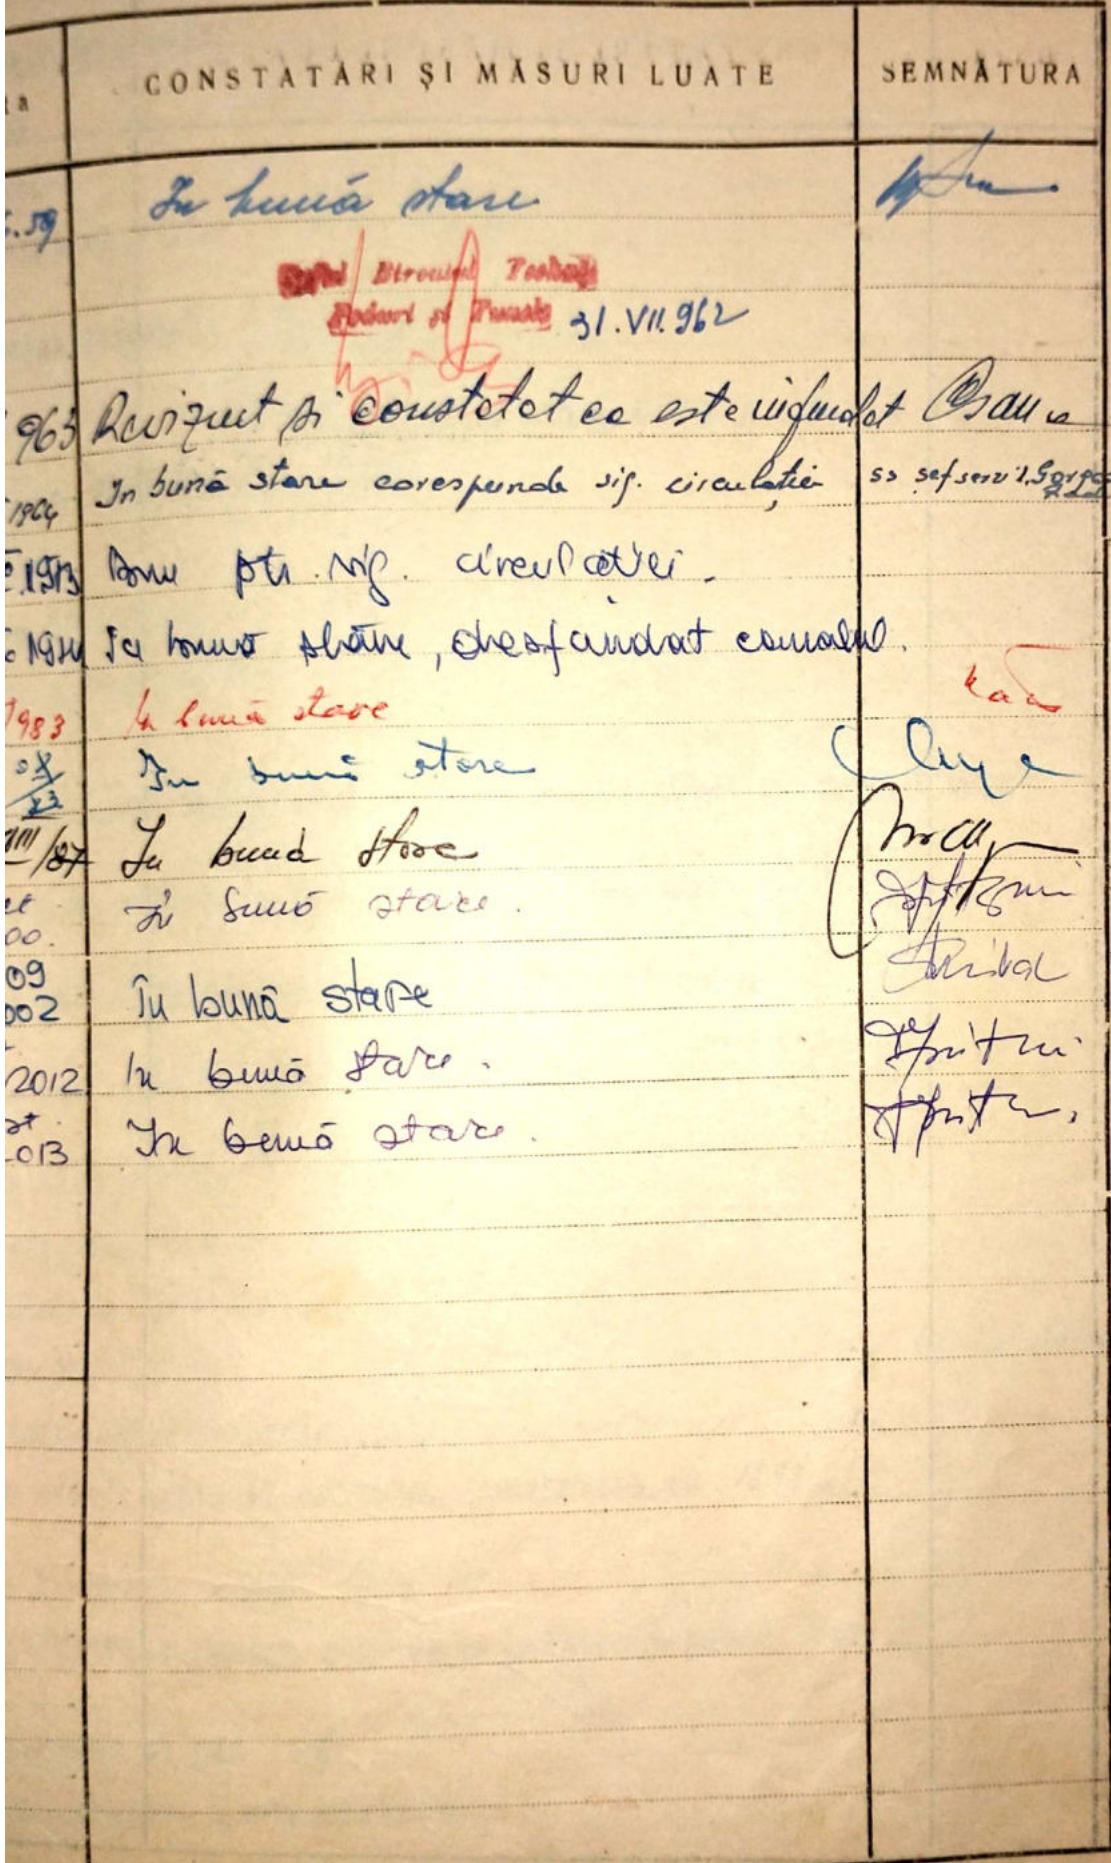 CONSTATĂRI ȘI MĂSURI LUATE SEMNĂTURA
.59 In bună stare
Poduri și Tunele 31.VII.962
963 Revizuit și constatat ca este infundat
1964 In bună stare corespunde sig. circulației ss șef serv
Bun ptr. sig. circulației.
In buna stare, desfundat canalul.
1983 In bună stare
In bună stare
VIII/87 In bună stare
00. In bună stare.
09
002 În bună stare
2012 In bună stare.
013 In bună stare.